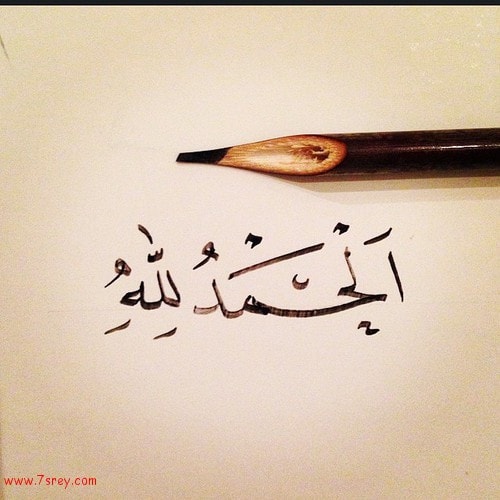 اَلْحَمْدُ لِلّٰهِ
www.7srey.com